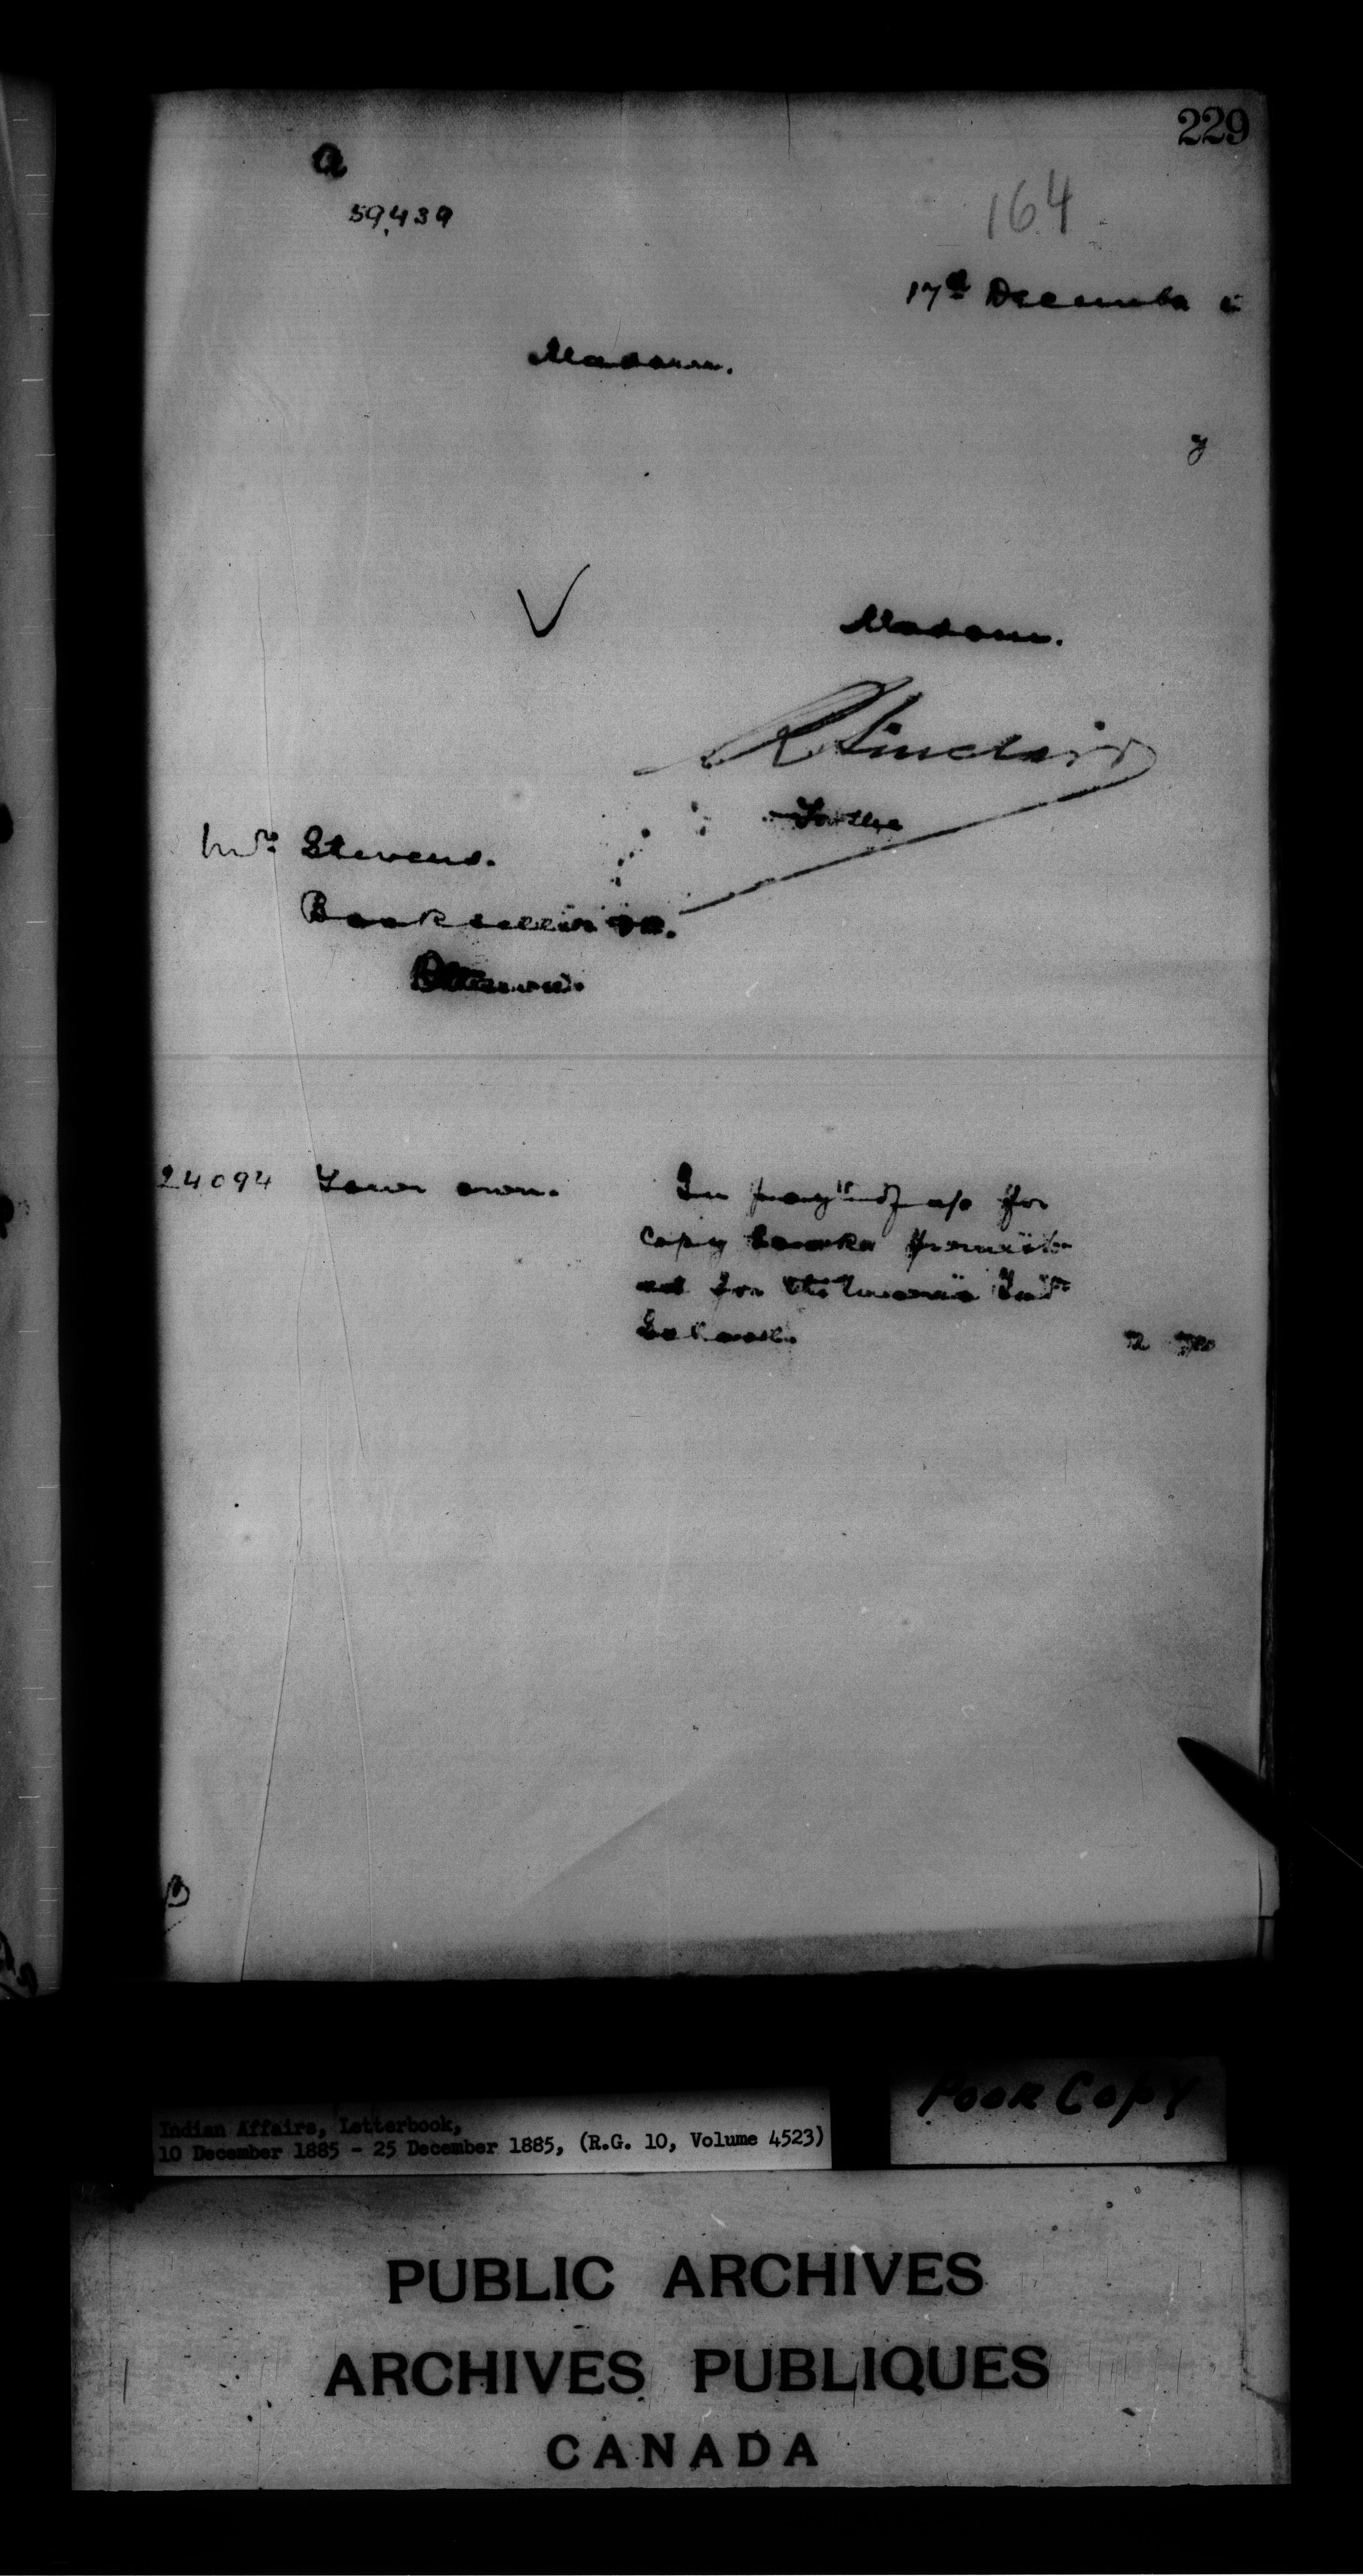 229
a
164
59,439
17th December 5
Madam.
y
Madam.
R Sinclair
For the
Mrs. Stevens.
Bookseller
24094 Your own. In paymt of a/c for
copy books
for the Ind
School. 2
B
Poor Copy
Indian Affairs, Letterbook,
10 December 1885 - 25 December 1885, (R.G. 10, Volume 4523)
PUBLIC ARCHIVES
ARCHIVES PUBLIQUES
CANADA